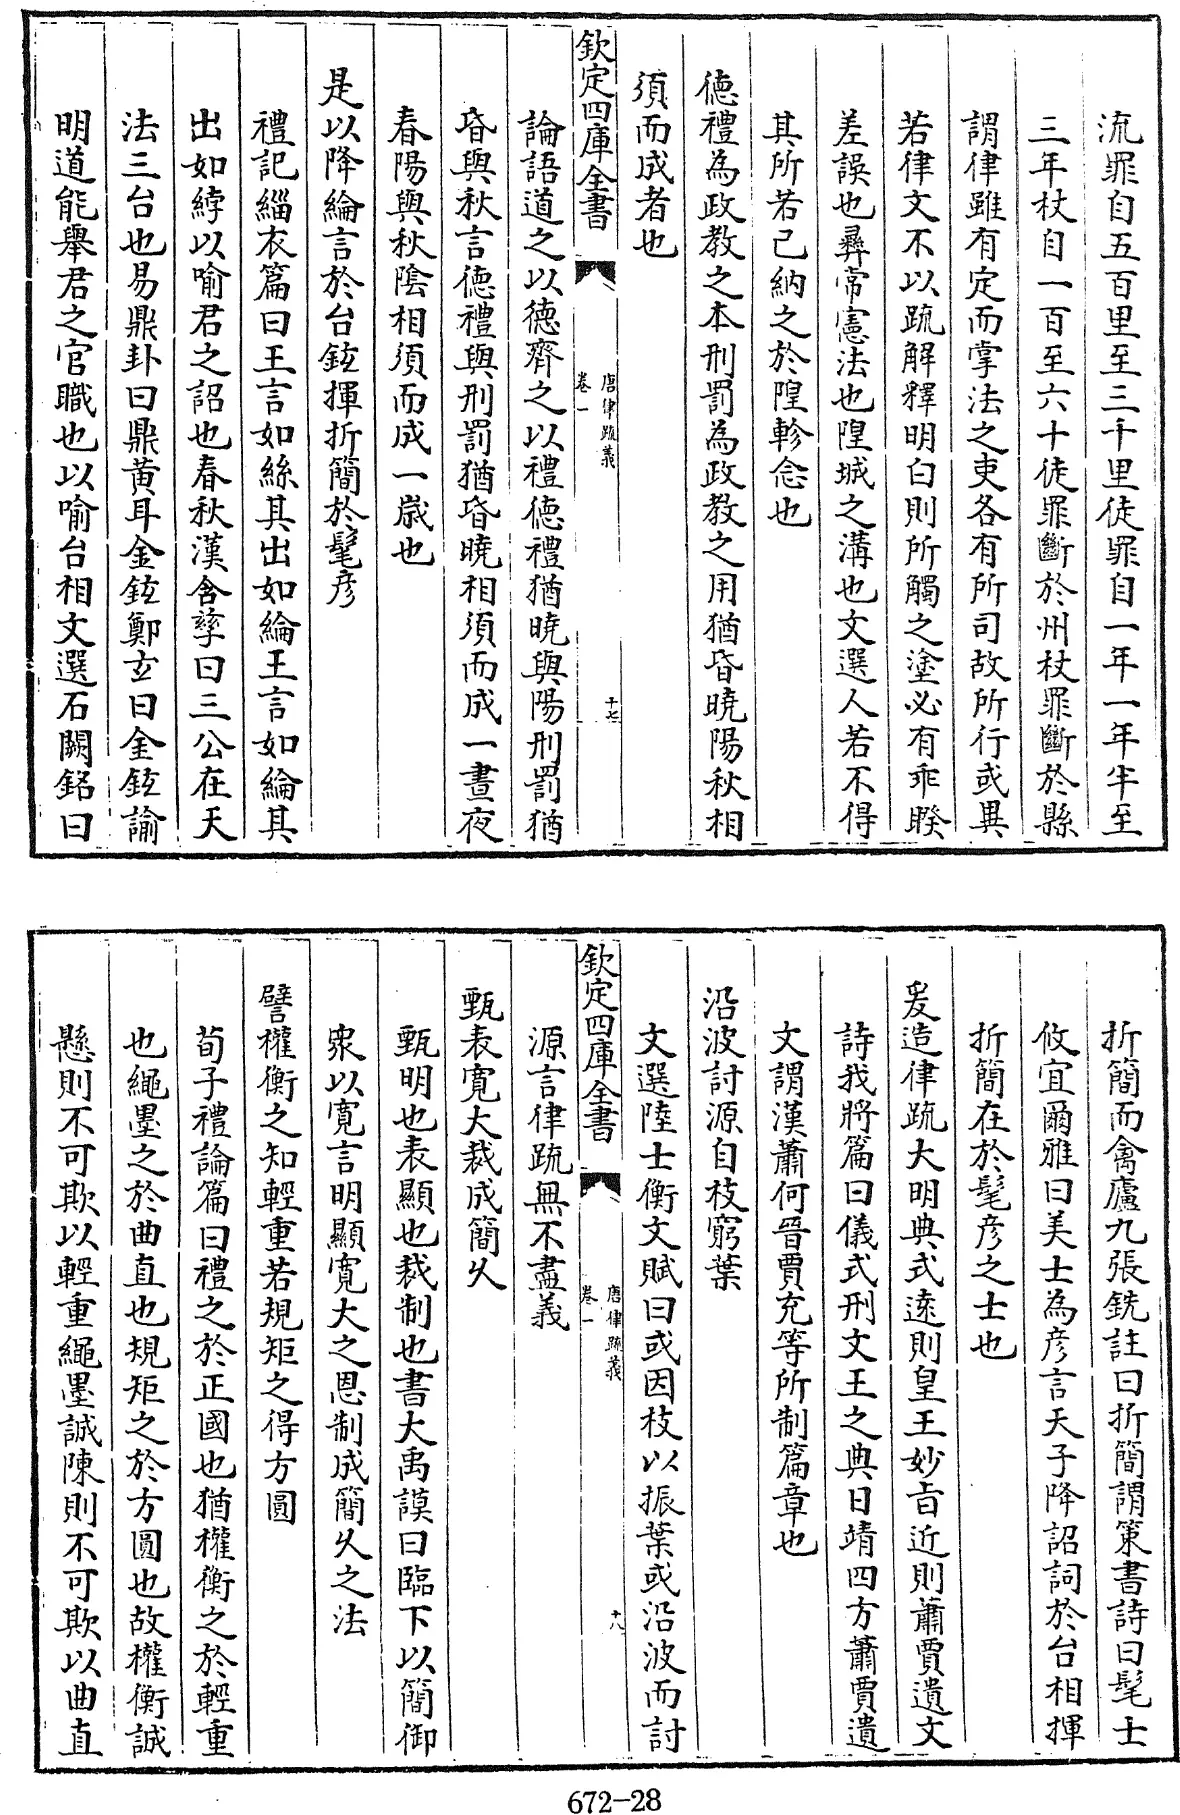 流罪自五百里至三千里徒罪自一年一年半至
三年杖自一百至六十徒罪斷於州杖罪斷於縣
謂律雖有定而掌法之吏各有所司故所行或異
若律文不以疏解釋明白則所觸之塗必有乖睽
差誤也彞常憲法也隍城之溝也文選人若不得
其所若己納之於隍軫念也
德禮為政教之本刑罰為政教之用猶昏曉陽秋相
須而成者也
欽定四庫全書
唐律疏義
卷一
十七
論語道之以德齊之以禮德禮猶曉與陽刑罰猶
昏與秋言德禮與刑罰猶昏曉相須而成一晝夜
春陽與秋陰相須而成一歲也
是以降綸言於台鉉揮折簡於髦彦
禮記緇衣篇曰王言如絲其出如綸王言如綸其
出如綍以喻君之詔也春秋漢含孳曰三公在天
法三台也易鼎卦曰鼎黄耳金鉉鄭玄曰金鉉諭
明道能舉君之官職也以喻台相文選石闕銘曰
折簡而禽廬九張銑註曰折簡謂策書詩曰髦士
攸宜爾雅曰美士為彦言天子降詔詞於台相揮
折簡在於髦彦之士也
爰造律疏大明典式逺則皇王妙㫖近則蕭賈遺文
詩我將篇曰儀式刑文王之典日靖四方蕭賈遺
文謂漢蕭何晉賈充等所制篇章也
沿波討源自枝窮葉
文選陸士衡文賦曰或因枝以振葉或沿波而討
欽定四庫全書
唐律疏義
卷一
十八
源言律疏無不盡義
甄表寛大裁成簡乆
甄明也表顯也裁制也書大禹謨曰臨下以簡御
衆以寛言明顯寛大之恩制成簡乆之法
譬權衡之知輕重若規矩之得方圓
荀子禮論篇曰禮之於正國也猶權衡之於輕重
也繩墨之於曲直也規矩之於方圓也故權衡誠
懸則不可欺以輕重繩墨誠陳則不可欺以曲直
672-28